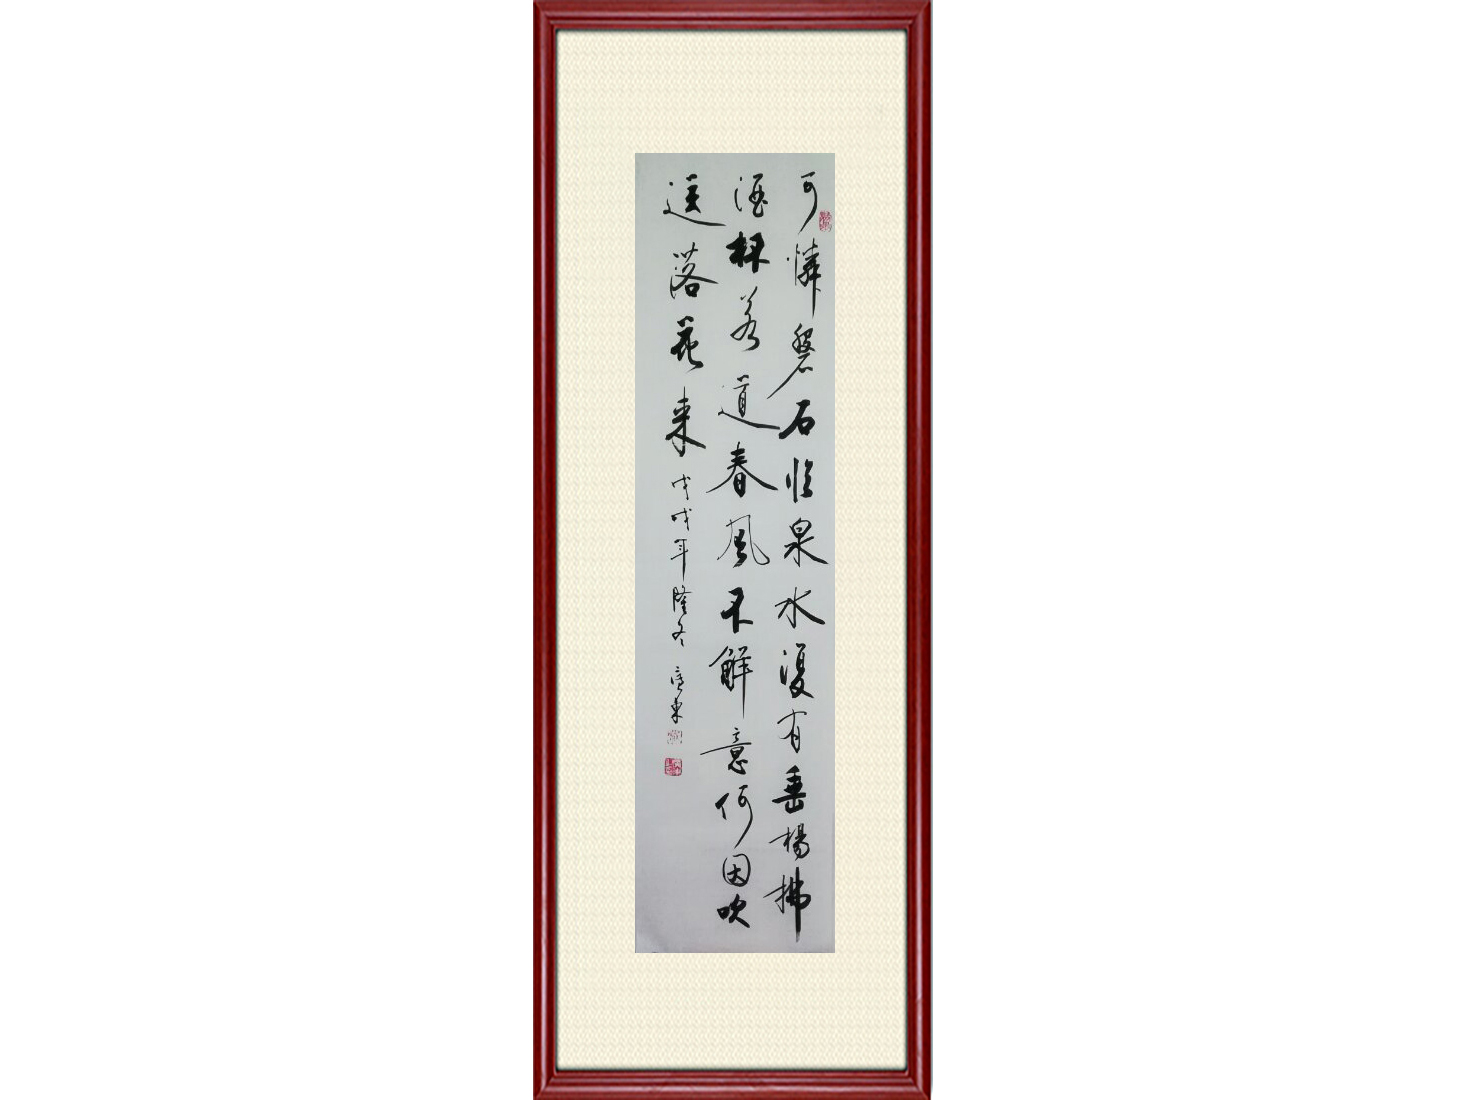 可憐磐石臨泉水復有垂楊拂
酒杯若道春風不解意何因吹
送落花来戊戌年隆冬